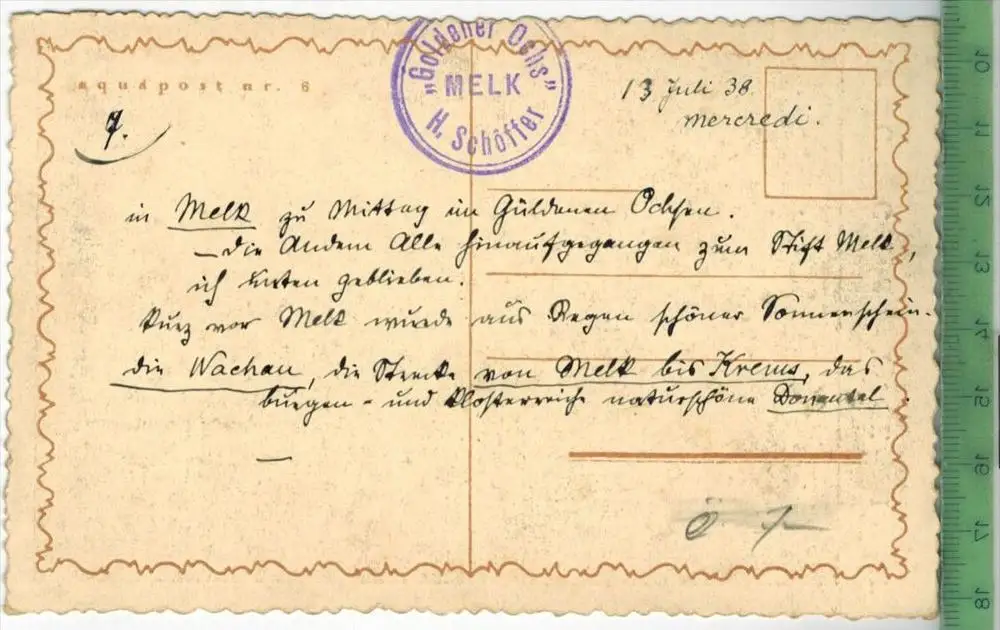 aquapost nr. 6
7.
"Goldener Ochs"
MELK
H. Schöffer
13 Juli 38.
mercredi.
in Melk zu Mittag im Güldenen Ochsen.
– die Andern Alle hinaufgegangen zum Stift Melk,
ich unten geblieben.
Kurz vor Melk wurde aus Regen schöner Sonnenschein.
die Wachau, die Strecke von Melk bis Krems, das
burgen- und klösterreiche naturschöne Donautal.
10
11
12
13
14
15
16
17
18